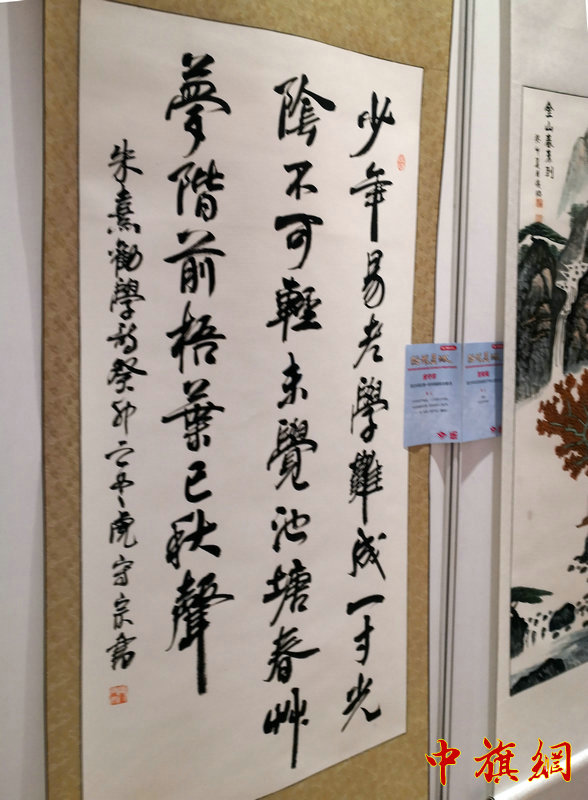 少年易老學難成一寸光
陰不可輕未覺池塘春艸
夢階前梧葉已秋聲
朱熹勸學詩癸卯之冬虎守宗書
金山春系列
中旗網